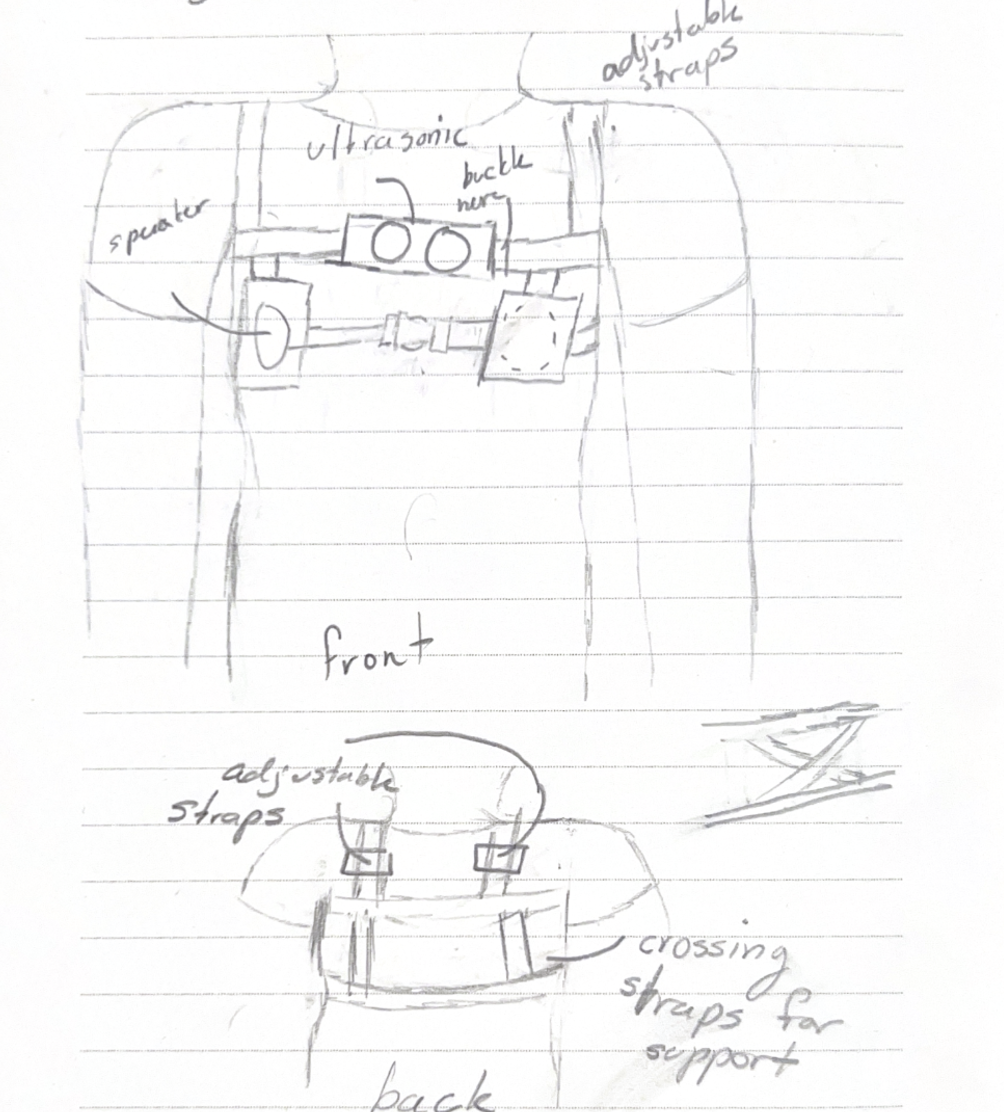 adjustable
straps
ultrasonic
buckle
here
speaker
front
adjustable
straps
crossing
straps for
support
back